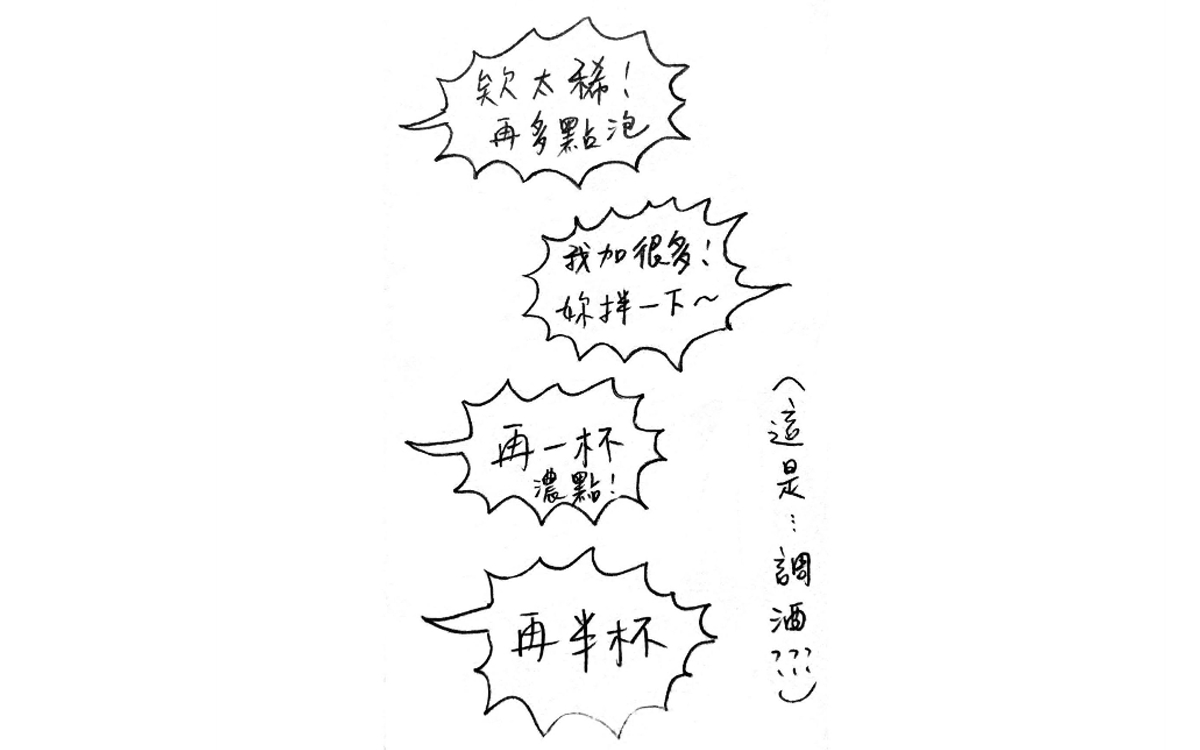 欸太稀！
再多點泡
我加很多！
妳拌一下～
再一杯
濃點！
再半杯
（這是…調酒???）